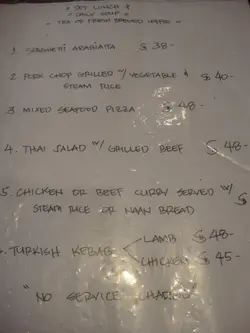 * SET LUNCH *
* DAILY SOUP *
- TEA OR FRESH BREWED COFFEE -
1 SPAGHETTI ARABIATA $ 38-
2 PORK CHOP GRILLED W/ VEGETABLE & $ 40-
STEAM RICE
3 MIXED SEAFOOD PIZZA - $ 48-
4. THAI SALAD W/ GRILLED BEEF $ 48-
5. CHICKEN OR BEEF CURRY SERVED W/ $
STEAM RICE OR NAAN BREAD
TURKISH KEBAB LAMB $ 48-
CHICKEN $ 45-
"NO SERVICE CHARGE"